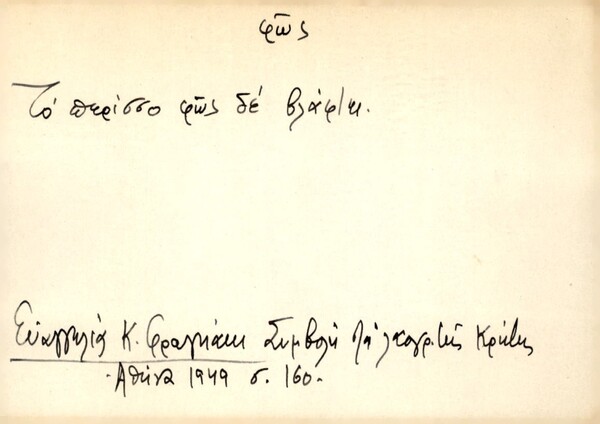 φῶς
Τό περίσσο φῶς δέ βλάφτει.
Εὐαγγελία Κ. Φραγκάκι Συμβολή Λαογρ. τῆς Κρήτης
Ἀθήνα 1949 σ. 160.